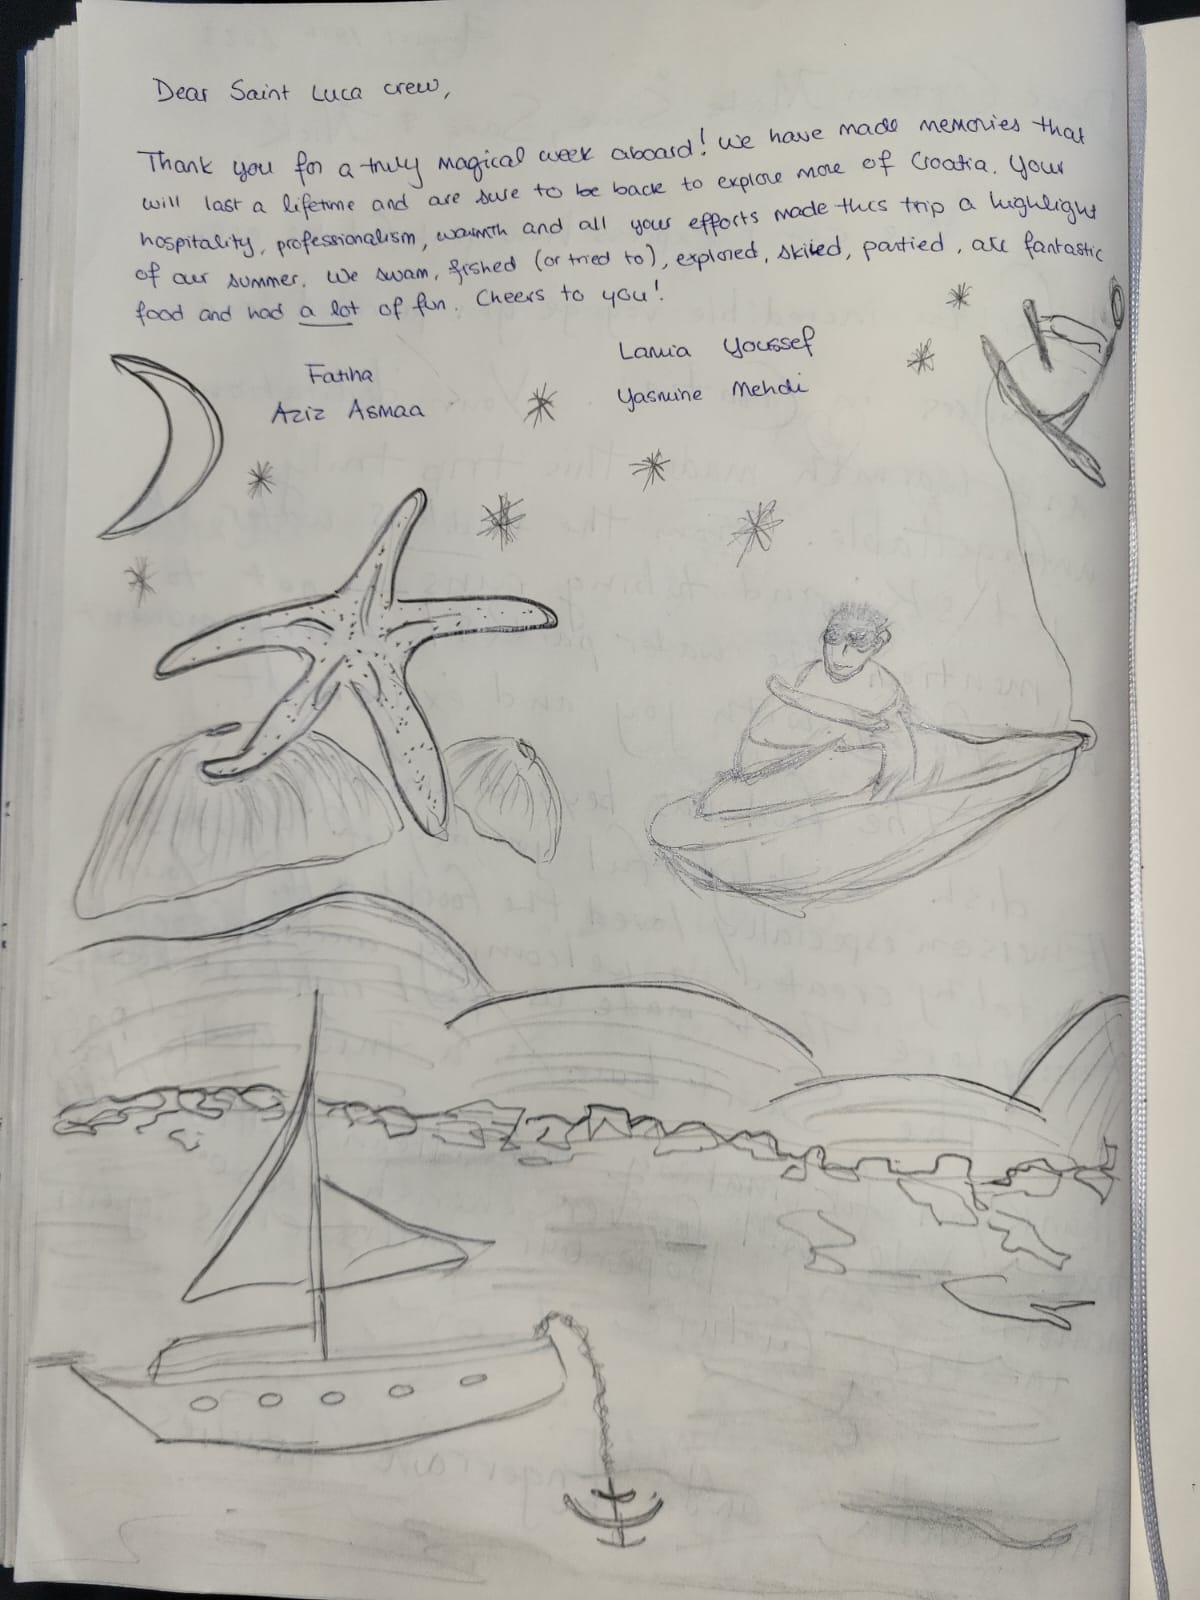 Dear Saint Luca crew,
Thank you for a truly magical week aboard! We have made memories that
will last a lifetime and are sure to be back to explore more of Croatia. Your
hospitality, professionalism, warmth and all your efforts made this trip a highlight
of our summer. We swam, fished (or tried to), explored, skiied, partied, ate fantastic
food and had a lot of fun. Cheers to you!
Lamia Youssef
Fatiha
Yasmine Mehdi
Aziz Asmaa